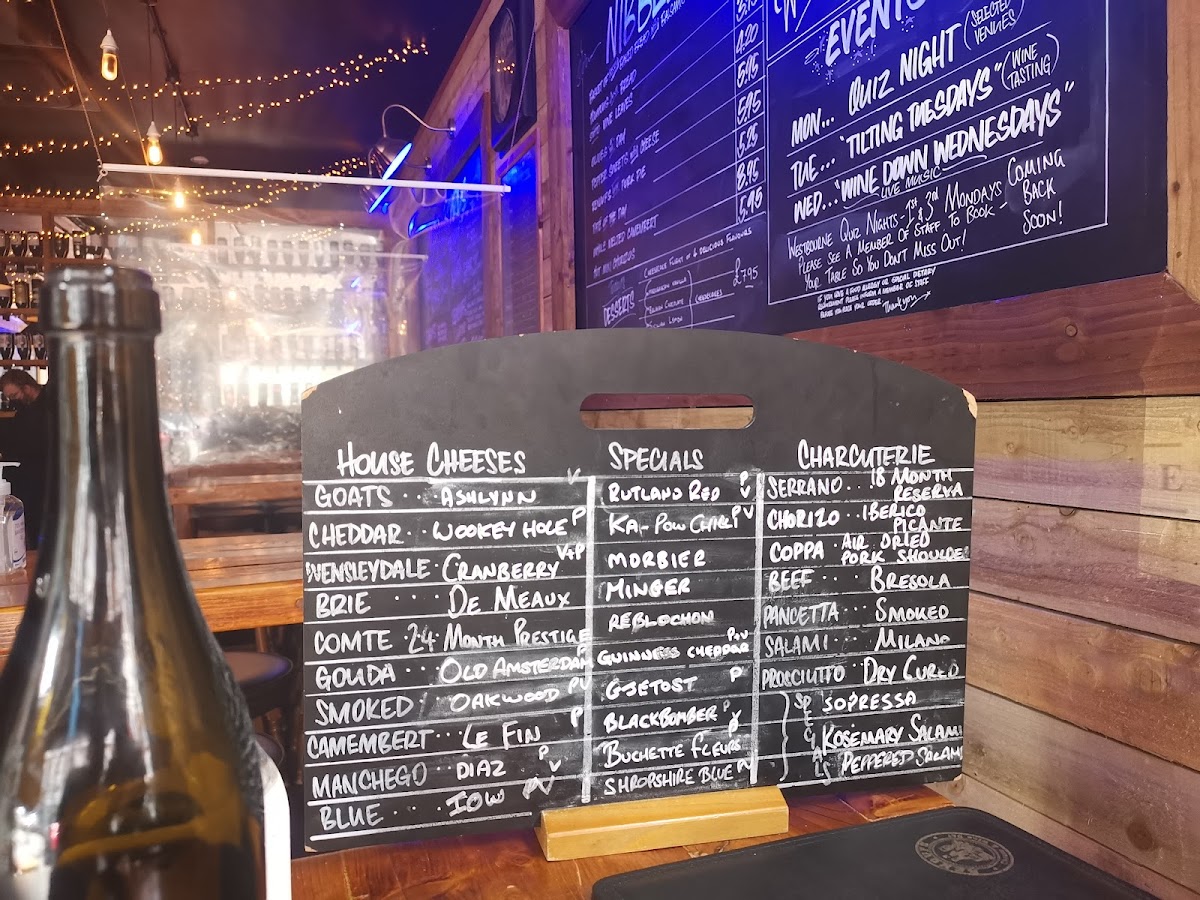 NIBBLES
4.90
5.95
5.95
5.25
8.95
5.95
DESSERTS
£7.95
EVENTS
MON... QUIZ NIGHT (SELECTED VENUES)
TUE... "TILTING TUESDAYS" (WINE TASTING)
WED... "WINE DOWN WEDNESDAYS"
LIVE MUSIC
WESTBOURNE QUIZ NIGHTS - 1ST & 3RD MONDAYS
PLEASE SEE A MEMBER OF STAFF TO BOOK -
YOUR TABLE SO YOU DON'T MISS OUT!
COMING
BACK
SOON!
IF YOU HAVE A FOOD ALLERGY OR SPECIAL DIETARY
REQUIREMENT PLEASE INFORM A MEMBER OF STAFF
Thank you
HOUSE CHEESES
GOATS .. ASHLYNN V
CHEDDAR .. WOOKEY HOLE P
WENSLEYDALE . CRANBERRY V+P
BRIE ... DE MEAUX
COMTE . 24 MONTH PRESTIGE
GOUDA ... OLD AMSTERDAM P
SMOKED . OAKWOOD PV
CAMEMBERT ... LE FIN P
MANCHEGO . DIAZ P
BLUE .. IOW PV
SPECIALS
RUTLAND RED P V
KA-POW CHILLI PV
MORBIER
MINGER
REBLOCHON
GUINNESS CHEDDAR P+V
GJETOST P
BLACKBOMBER P
BUCHETTE FLEURS
SHROPSHIRE BLUE PV
CHARCUTERIE
SERRANO ... 18 MONTH RESERVA
CHORIZO .. IBERICO PICANTE
COPPA . AIR DRIED PORK SHOULDER
BEEF .... BRESOLA
PANCETTA ... SMOKED
SALAMI .... MILANO
PROSCIUTTO .. DRY CURED
SPECIALS
SOPRESSA
ROSEMARY SALAMI
PEPPERED SALAMI